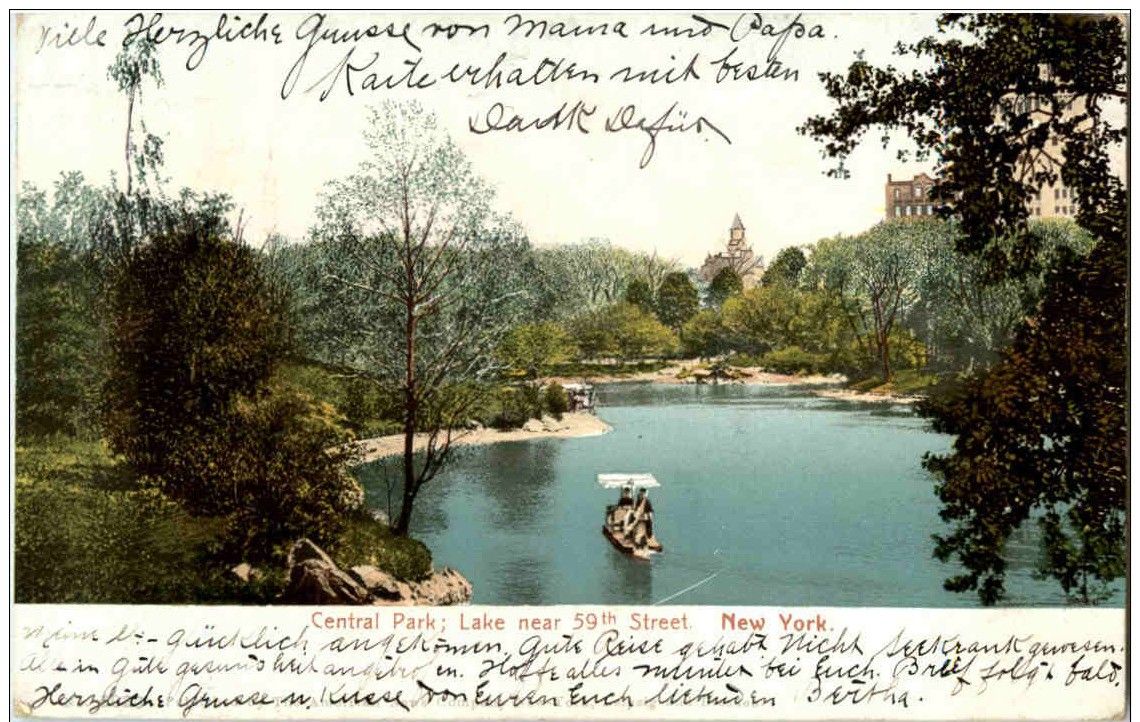 Viele Herzliche Gruesse von Mama und Papa.
Karte erhalten mit besten
Dank Dafür
Central Park; Lake near 59th Street. New York.
Glücklich angekommen. Gute Reise gehabt Nicht seekrank gewesen.
Alle in gute gesundheit angetroffen. Hoffe alles munter bei Euch. Brief folgt bald.
Herzliche Gruesse u. Küsse von Euren Euch liebenden Bertha.